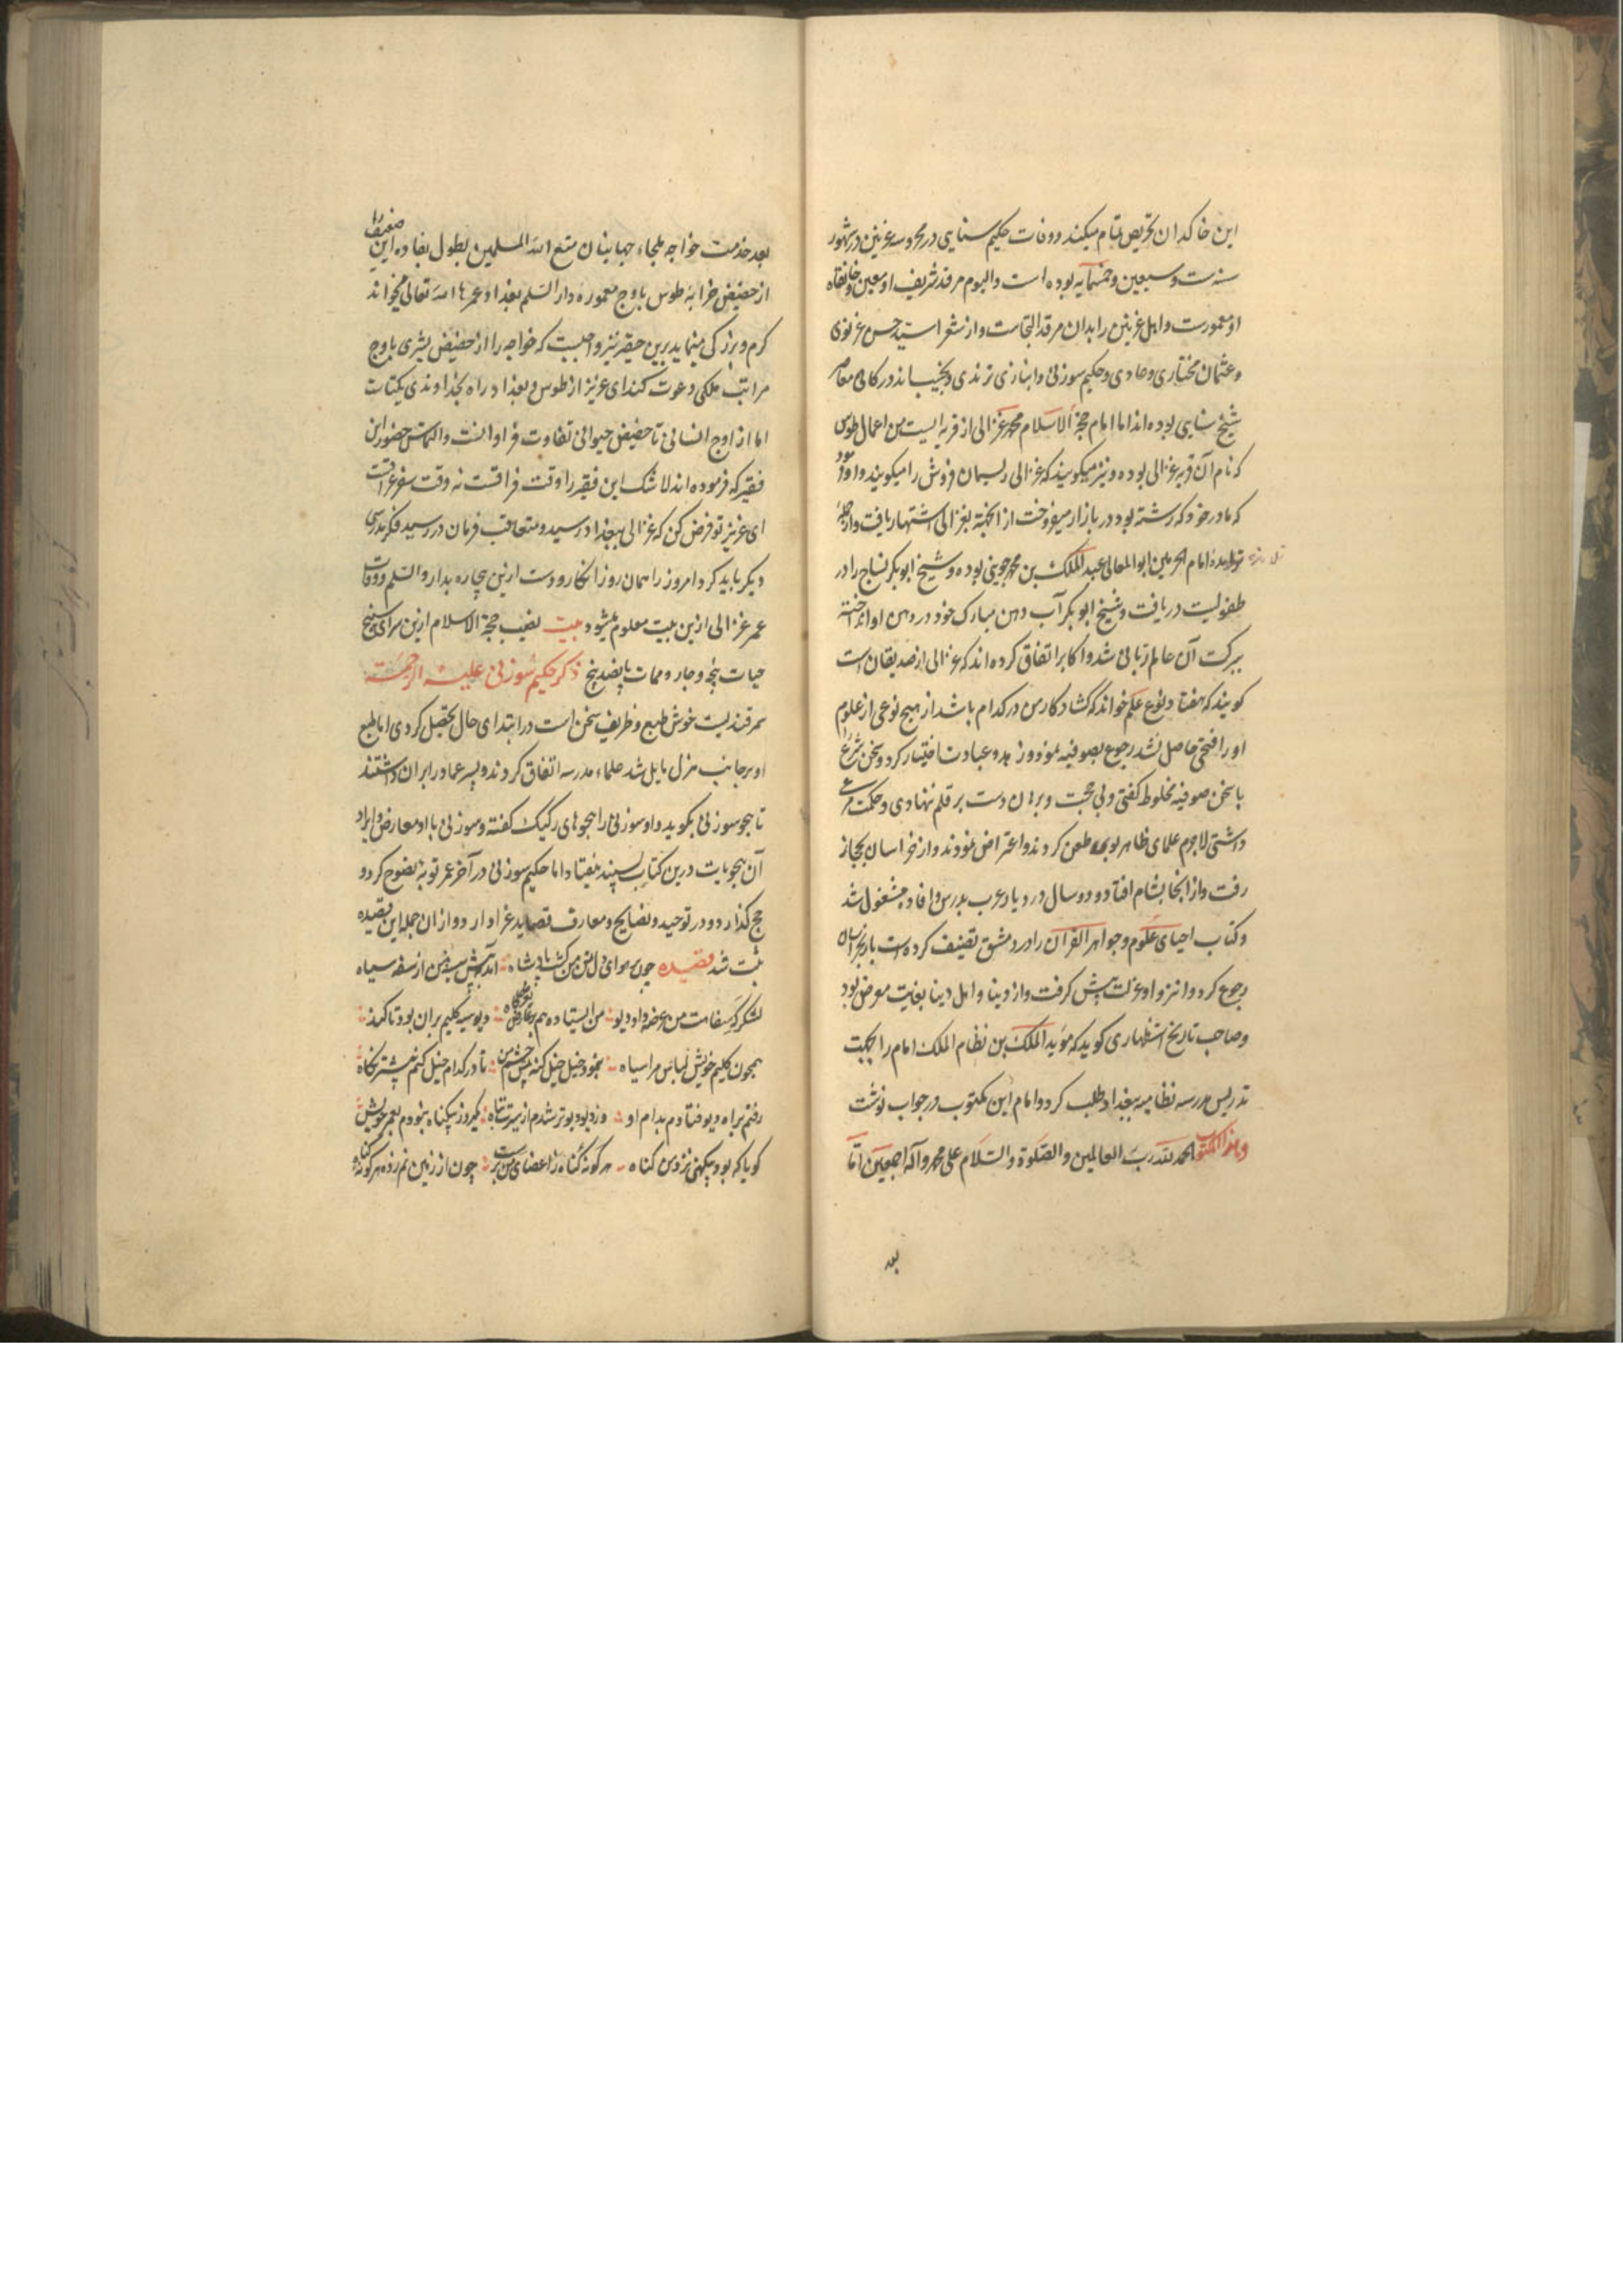 این خاکدان تحریص تمام میکند و وفات حکیم سنایی در محروسه غزنین در شهور
سنه ست و سبعین و خمسمایه بوده است و الیوم مرقد شریف او معین و خانقاه
او معمورست و اهل غزنین را بدان مرقد التجاست و از شعرا سید حسن غزنوی
و عثمان مختاری و عمادی و حکیم سوزنی و انبازی ترمدی و نجیب الدین
شیخ سنایی بوده اند اما امام حجة الاسلام محمد غزالی از قریه ایست من اعمال طوس
که نام آن قریه غزالی بوده و نیز میکویند که غزالی ریسمان فروش را میکویند و او را بود
که مادر خود که رشته بود در بازار میفروخت از انجهته بغزالی اشتهار یافت و از جمله
تلامذه امام الحرمین ابو المعالی عبد الملک بن محمد جوینی بوده و شیخ ابو بکر نساج را در
طفولیت دریافت و شیخ ابو بکر آب دهن مبارک خود در دهن او انداخته
ببرکت آن عالم ربانی شد و اکابر اتفاق کرده اند که غزالی از صدیقان است
کویند که هفتاد نوع علم خواند که کشاد کار من در کدام باشد از هیچ نوعی از علوم
او را فتحی حاصل نشد رجوع بصوفیه نمود و زهد و عبادت اختیار کرد و سخن شرع
با سخن صوفیه مخلوط کفتی و بی حجت و برهان دست بر قلم ننهادی و حکمت
داشتی لاجرم علمای ظاهر بوی طعن کردند و اعتراض نمودند و از خراسان بحجاز
رفت و از انجا بشام افتاد و دو سال در دیار عرب بدرس و افاده مشغول شد
و کتاب احیای علوم و جواهر القرآن را در دمشق تصنیف کرده است باز بخراسان
رجوع کرد و انزوا و عزلت پیش کرفت و از دنیا و اهل دنیا بغایت معرض بود
و صاحب تاریخ استظهاری کوید که مؤید الملک بن نظام الملک امام را بجهت
تدریس مدرسه نظامیه بغداد طلب کرد و امام این مکتوب در جواب نوشت
و هذا المکتوب الحمد لله رب العالمین و الصلوة و السلام علی محمد و آله اجمعین اما
بعد
بعد خدمت خواجه ملجاء جهانیان متع الله المسلمین بطول بقاءه این ضعیف را
از حضیض خرابه طوس باوج معموره دار السلم بغداد عمرها الله تعالی میخواند
کرم و بزرکی مینماید برین حقیر نیز واجبست که خواجه را از حضیض بشری باوج
مراتب ملکی دعوت کند ای عزیز از طوس و بغداد راه بخداوندی یکتاست
اما از اوج انسانی تا حضیض حیوانی تفاوت فراوانست و التماس حضور این
فقیر که فرموده اند لا شک این فقیر را وقت فراقست نه وقت سفر عراقست
ای عزیز تو فرض کن که غزالی ببغداد رسید و متعاقب فرمان در رسید فکر مدرسی
دیکر باید کرد امروز را همان روز انکار و دست ازین بیچاره بدار و السلم و وفات
عمر غزالی ازین بیت معلوم میشود بیت نصیب حجة الاسلام ازین سرای سپنج
حیات پنجه و چار و ممات پانصد پنج ذکر حکیم سوزنی علیه الرحمة
سمرقندیست خوش طبع و ظریف سخن است در ابتدای حال تحصیل کردی اما طبع
او بر جانب هزل مایل شد علماء مدرسه اتفاق کردند و پسر عماد را بران داشتند
تا هجو سوزنی بکوید و او سوزنی را هجوهای رکیک کفته و سوزنی با او معارض و ایراد
آن هجویات درین کتاب پسندیده نیفتاد اما حکیم سوزنی در آخر عمر توبه نصوح کرد و
حج کذارد و در توحید و نصایح و معارف قصاید غرا دارد و ازان جمله این قصیده
ثبت شد قصیده چون بر هوای دل تن من کشت پادشاه آمد به پیش من از سفه سپاه
لشکر که سفاهت من عرضه داد دیو من ایستاده هم بر عارض بعرضگاه دیو سیه کلیم بران بود تا کند
همچون کلیم خویش لباس مرا سیاه بنمود خیل خیل کنه پیش چشم من تا در کدام خیل کنم بیشتر نکاه
رفتم براه دیو فتادم بدام او وز دیو دیوتر شدم از سیرت تباه یکروز بیکناه نبودم بعمر خویش
کویا که بود بیکنهی نزد من کناه هر کونه کناه ز اعضای من برست چون از زمین نم زده هر کونه کیاه